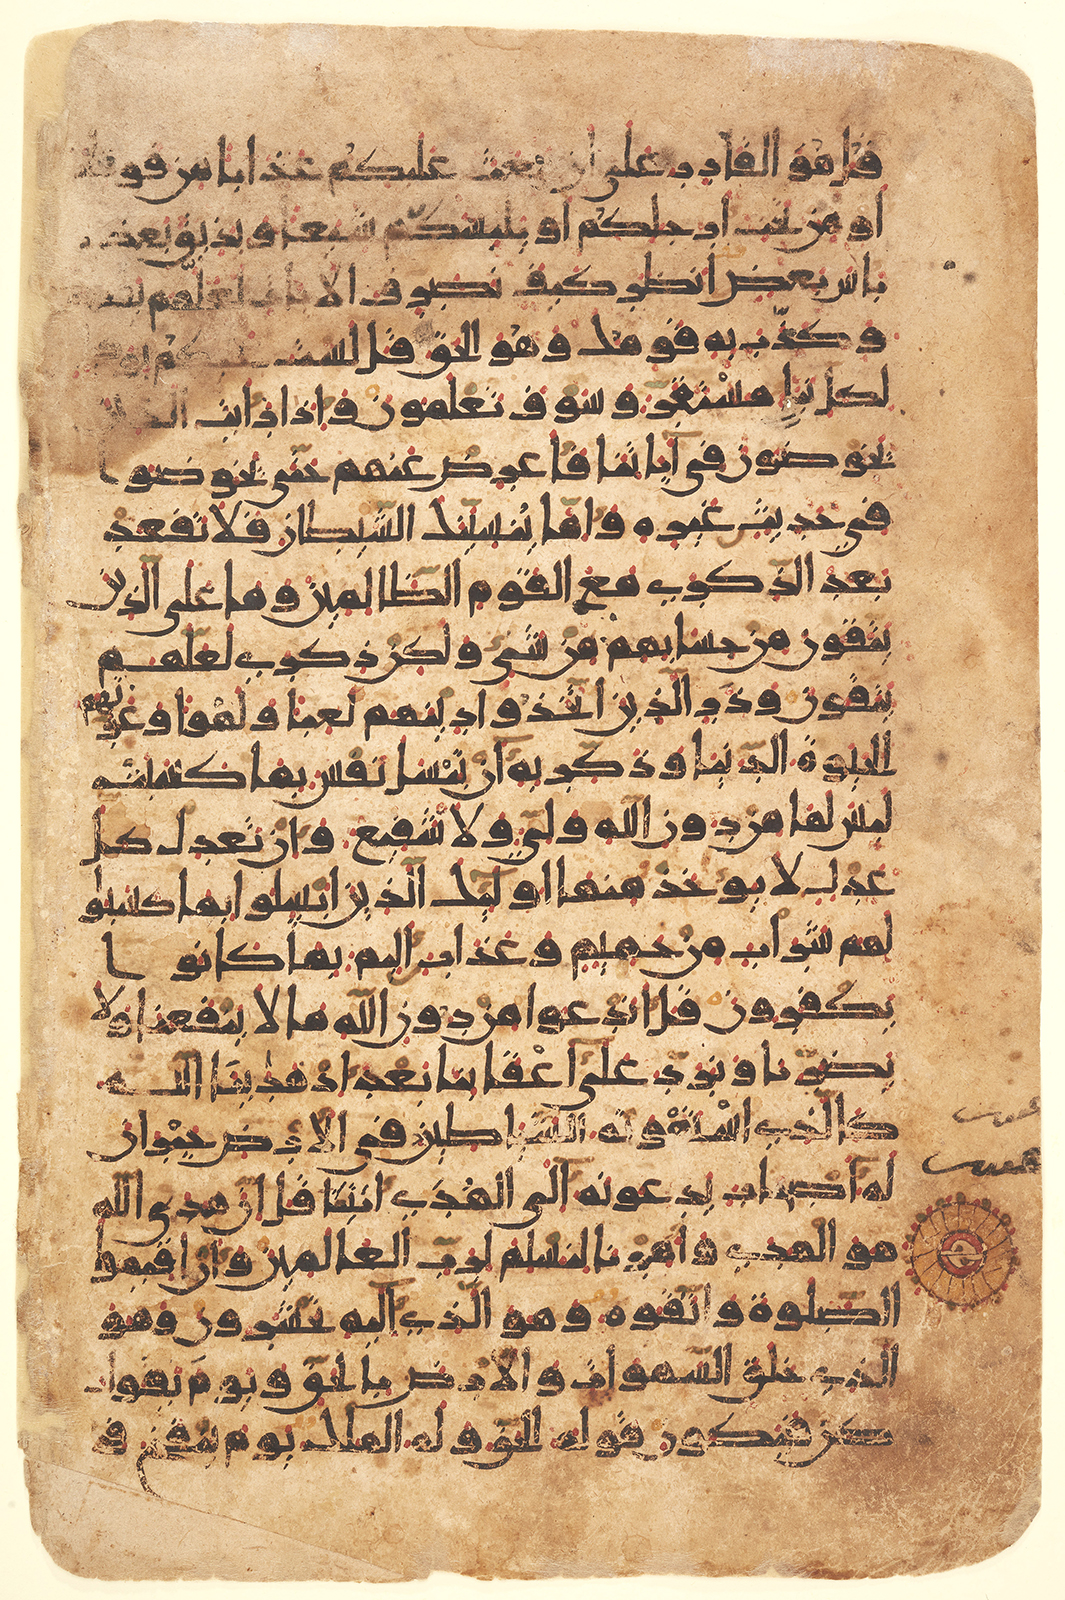 قل هو القادر على ان يبعث عليكم عذابا من فو
او من تحت ارجلكم او يلبسكم شيعا ويذيق بعضكم
باس بعض انظر كيف نصرف الايات لعلهم
وكذب به قومك وهو الحق قل لست عليكم
لكل نبإ مستقر وسوف تعلمون واذا رايت الذين
يخوضون في آياتنا فاعرض عنهم حتى يخوضوا
في حديث غيره واما ينسينك الشيطان فلا تقعد
بعد الذكرى مع القوم الظالمين وما على الذين
يتقون من حسابهم من شيء ولكن ذكرى لعلهم
يتقون وذر الذين اتخذوا دينهم لعبا ولهوا وغرتهم
الحيوة الدنيا وذكر به أن تبسل نفس بما كسبت
ليس لها من دون الله ولي ولا شفيع وان تعدل كل
عدل لا يوخذ منها اوليك الذين ابسلوا بما كسبوا
لهم شراب من حميم وعذاب اليم بما كانوا
يكفرون قل اندعوا من دون الله ما لا ينفعنا ولا
يضرنا ونرد على أعقابنا بعد اذ هدينا الله
كالذي استهوته الشياطين في الارض حيران
له أصحاب يدعونه الى الهدى ائتنا قل ان هدى الله
هو الهدى وامرنا لنسلم لرب العالمين وان اقيموا
الصلوة واتقوه وهو الذي اليه تحشرون وهو
الذي خلق السموات والارض بالحق ويوم يقول
كن فيكون قوله الحق وله الملك يوم ينفخ في